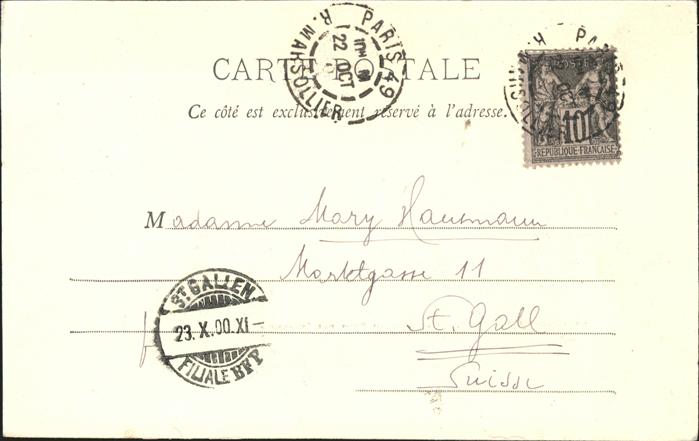 CARTE POSTALE
Ce côté est exclusivement réservé à l'adresse.
PARIS·49
R. MARSOLLIER
22 OCT
POSTES
10
REPUBLIQUE FRANÇAISE
Madame Mary Hausmann
Marktgasse 11
St. Gall
Suisse
ST GALLEN
23.X.00.XI-
FILIALE BRP